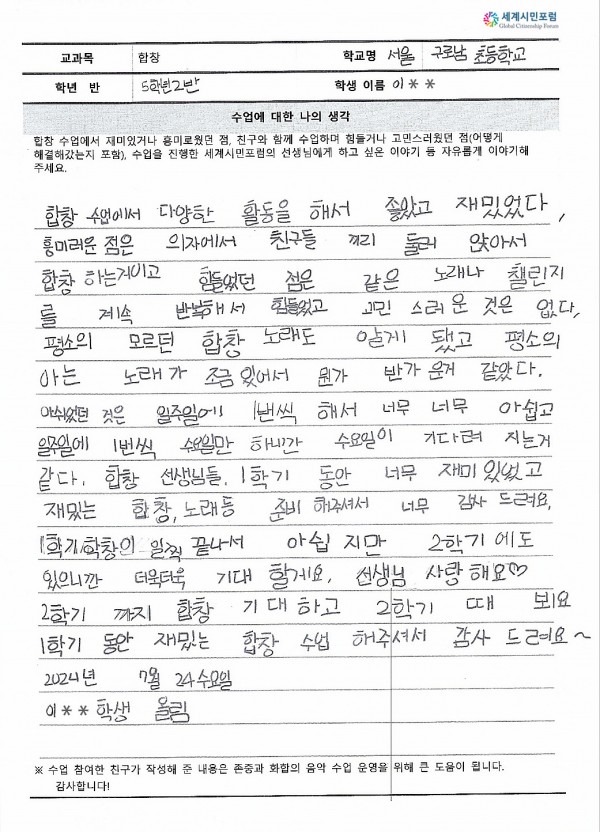 세계시민포럼
Global Citizenship Forum
교과목 합창 학교명 서울 구로남 초등학교
학년 반 5학년2반 학생 이름 이**
수업에 대한 나의 생각
합창 수업에서 재미있거나 흥미로웠던 점, 친구와 함께 수업하며 힘들거나 고민스러웠던 점(어떻게
해결해갔는지 포함), 수업을 진행한 세계시민포럼의 선생님에게 하고 싶은 이야기 등 자유롭게 이야기해
주세요.
합창 수업에서 다양한 활동을 해서 좋았고 재밌었다,
흥미러운 점은 의자에서 친구들 끼리 둘러 앉아서
합창 하는거이고 힘들었던 점은 같은 노래나 챌린지
를 계속 반복해서 힘들었고 고민 스러운 것은 없다,
평소의 모르던 합창 노래도 알게 됐고 평소의
아는 노래가 조금 있어서 뭔가 반가운거 같았다.
아쉬었던 것은 일주일에 1번씩 해서 너무 너무 아쉽고
일주일에 1번씩 수요일만 하니깐 수요일이 기다려 지는거
같다. 합창 선생님들. 1학기 동안 너무 재미있었고
재밌는 합창, 노래등 준비 해주셔서 너무 감사 드려요,
1학기 합창의 일찍 끝나서 아쉽 지만 2학기에도
있으니까 더욱더욱 기대 할게요, 선생님 사랑해요♡
2학기 까지 합창 기대하고 2학기 때 봬요
1학기 동안 재밌는 합창 수업 해주셔서 감사 드려요~
2024년 7월 24수요일
이** 학생 올림
※ 수업 참여한 친구가 작성해 준 내용은 존중과 화합의 음악 수업 운영을 위해 큰 도움이 됩니다.
감사합니다!